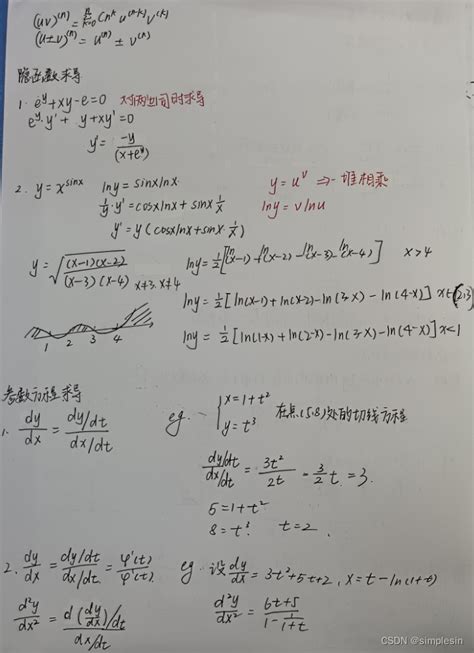 (uv)⁽ⁿ⁾ = Σₖ₌₀ⁿ Cnᵏ u⁽ⁿ⁻ᵏ⁾ v⁽ᵏ⁾
(u±v)⁽ⁿ⁾ = u⁽ⁿ⁾ ± v⁽ⁿ⁾
隐函数求导
1. eʸ+xy-e=0 对两边同时求导
eʸ·y' + y+xy'=0
y' = -y/(x+eʸ)
2. y=x^sinx lny=sinxlnx y=uᵛ ⇒ 一堆相乘
1/y·y'=cosxlnx+sinx·1/x lny=vlnu
y'=y(cosxlnx+sinx·1/x)
y=√((x-1)(x-2)/(x-3)(x-4)) x≠3.x≠4 lny=1/2[ln(x-1)+ln(x-2)-ln(x-3)-ln(x-4)] x>4
lny=1/2[ln(x-1)+ln(x-2)-ln(3-x)-ln(4-x)] x∈(2,3)
1 2 3 4
lny=1/2[ln(1-x)+ln(2-x)-ln(3-x)-ln(4-x)] x<1
参数方程求导
1. dy/dx = (dy/dt)/(dx/dt) eg. { x=1+t² y=t³ 在点(5.8)处的切线方程
(dy/dt)/(dx/dt) = 3t²/2t = 3/2 t = 3.
5=1+t²
8=t³ t=2.
2. dy/dx = (dy/dt)/(dx/dt) = φ'(t)/φ'(t) eg. 设dy/dx=3t²+5t+2, x=t-ln(1+t)
d²y/dx² = (d(dy/dx)/dt)/(dx/dt) d²y/dx² = (6t+5)/(1-1/(1+t))
CSDN @simplesin